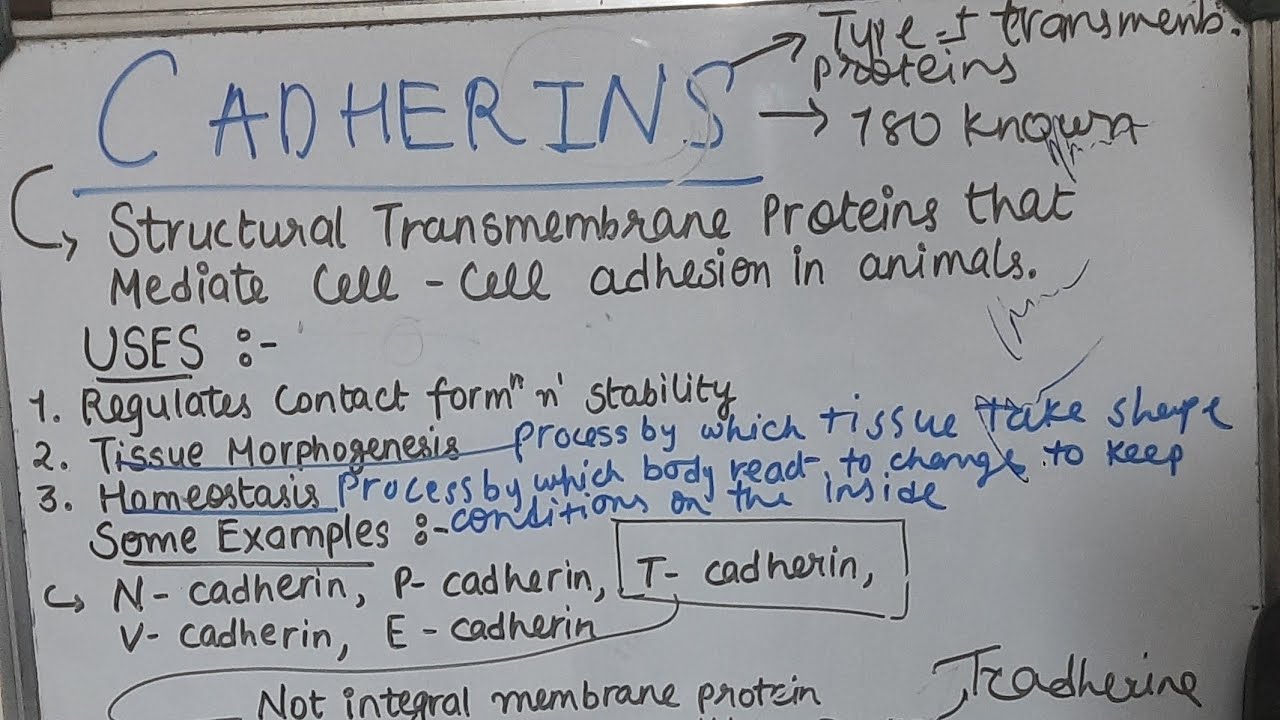 CADHERINS
→ Type-I transmemb. proteins
→ 180 known
Structural Transmembrane Proteins that
Mediate Cell-Cell adhesion in animals.
USES :-
1. Regulates Contact formⁿ n' stability
2. Tissue Morphogenesis process by which tissue take shape
3. Homeostasis Process by which body react to change to keep
conditions on the inside
Some Examples :-
N- cadherin, P- cadherin, T- cadherin,
V- cadherin, E- cadherin
Not integral membrane protein